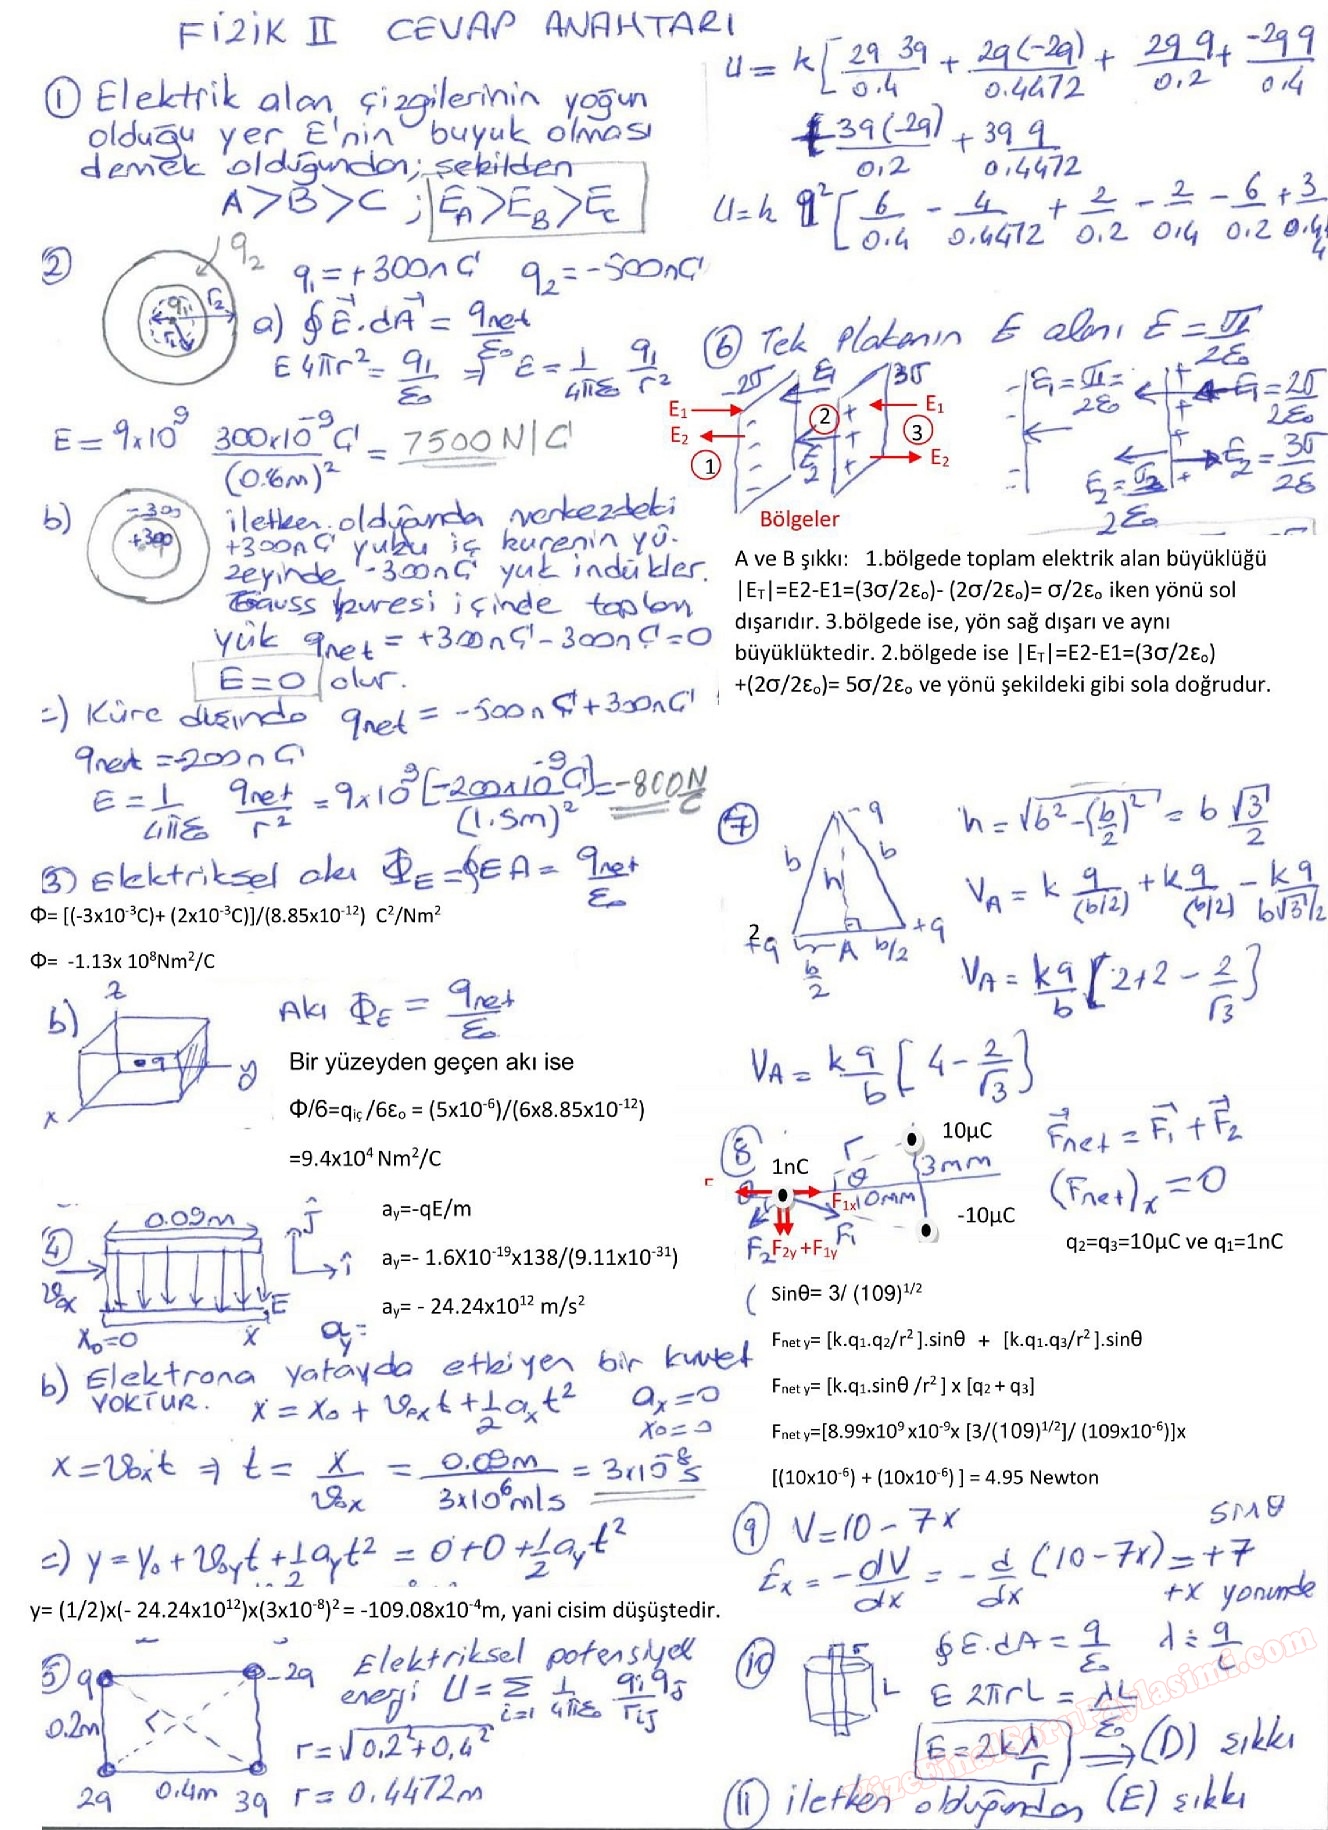 FİZİK II CEVAP ANAHTARI
① Elektrik alan çizgilerinin yoğun
olduğu yer E'nin buyuk olması
demek olduğundan; şekilden
A>B>C ; E_A>E_B>E_C
② q₂
q₁=+300nC q₂=-500nC
q₁ r₂
r₁
a) ∮E⃗.dA⃗ = qnet/ε₀
E4πr² = q₁/ε₀ ⇒ E = 1/4πε₀ q₁/r²
E = 9x10⁹ 300x10⁻⁹C/(0.6m)² = 7500 N/C
b) -300
+300
iletken olduğunda merkezdeki
+300nC yuku iç kurenin yü-
zeyinde -300nC yuk indükler.
Gauss küresi içinde toplam
yük qnet = +300nC-300nC=0
E=0 olur.
c) Küre dışında qnet = -500nC+300nC
qnet = -200nC
E = 1/4πε₀ qnet/r² = 9x10⁹ [-200x10⁻⁹C]/(1.5m)² = -800N/C
③ Elektriksel akı Φ_E = ∮EA = qnet/ε₀
Φ= [(-3x10⁻³C)+ (2x10⁻³C)]/(8.85x10⁻¹²) C²/Nm²
Φ= -1.13x 10⁸Nm²/C
b) z
q
y
x
Akı Φ_E = qnet/ε₀
Bir yüzeyden geçen akı ise
Φ/6=qiç /6εₒ = (5x10⁻⁶)/(6x8.85x10⁻¹²)
=9.4x10⁴ Nm²/C
④ 0.09m
ĵ
î
v₀x
E
x₀=0 x
ay=-qE/m
ay=- 1.6X10⁻¹⁹x138/(9.11x10⁻³¹)
ay= - 24.24x10¹² m/s²
ay=
b) Elektrona yatayda etkiyen bir kuvvet
YOKTUR. x = x₀ + v₀xt + 1/2 axt² ax=0
x₀=0
x=v₀xt ⇒ t = x/v₀x = 0.09m/3x10⁶m/s = 3x10⁻⁸s
c) y = y₀ + v₀yt + 1/2 ayt² = 0+0+1/2 ayt²
y= (1/2)x(- 24.24x10¹²)x(3x10⁻⁸)² = -109.08x10⁻⁴m, yani cisim düşüştedir.
⑤ q -2q
0.2m
2q 0.4m 3q
Elektriksel potensiyel
enerji U = Σ i=1 1/4πε₀ qiqj/rij
r=√0.2²+0,4²
r = 0.4472m
U = k[2q 3q/0.4 + 2q(-2q)/0.4472 + 2q q/0.2 + -2q q/0.4
+ 3q(-2q)/0,2 + 3q q/0.4472
U=k q²[6/0.4 - 4/0.4472 + 2/0.2 - 2/0.4 - 6/0.2 + 3/0.44
4
⑥ Tek plakanın E alanı E = σ/2ε₀
-2σ E₁ 3σ
E₁ E₁
E₂ E₂
① ② ③
E₂
Bölgeler
E₁=σ₁/2ε₀= E₁=2σ/2ε₀
E₂=σ₂/2ε₀ E₂=3σ/2ε
A ve B şıkkı: 1.bölgede toplam elektrik alan büyüklüğü
|E_T|=E2-E1=(3σ/2εₒ)- (2σ/2εₒ)= σ/2εₒ iken yönü sol
dışarıdır. 3.bölgede ise, yön sağ dışarı ve aynı
büyüklüktedir. 2.bölgede ise |E_T|=E2-E1=(3σ/2εₒ)
+(2σ/2εₒ)= 5σ/2εₒ ve yönü şekildeki gibi sola doğrudur.
⑦ -q
b b
h
2
+q A b/2 +q
b/2
h = √b²-(b/2)² = b √3/2
V_A = k q/(b/2) + k q/(b/2) - kq/b√3/2
V_A = kq/b [2+2 - 2/√3]
V_A = k q/b [4 - 2/√3]
⑧ 1nC
r
θ
10μC
3mm
10mm
-10μC
F₁x
F₁
F₂
F₂y +F₁y
F⃗net = F⃗₁ + F⃗₂
(Fnet)x = 0
q₂=q₃=10μC ve q₁=1nC
Sinθ= 3/ (109)^1/2
Fnet y= [k.q₁.q₂/r² ].sinθ + [k.q₁.q₃/r² ].sinθ
Fnet y= [k.q₁.sinθ /r² ] x [q₂ + q₃]
Fnet y=[8.99x10⁹ x10⁻⁹x [3/(109)^1/2]/ (109x10⁻⁶)]x
[(10x10⁻⁶) + (10x10⁻⁶) ] = 4.95 Newton
sınθ
⑨ V=10-7x
Ex = -dV/dx = -d/dx (10-7x) = +7
+x yonunde
⑩ r
L
∮E.dA = q/ε₀ λ = q/L
E 2πrL = λL/ε₀
E = 2kλ/r ⇒ (D) şıkkı
⑪ iletken olduğundan (E) şıkkı
VizeFinalSoruPaylasimi.com